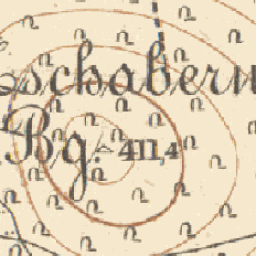 schabern
Bg. 411,4